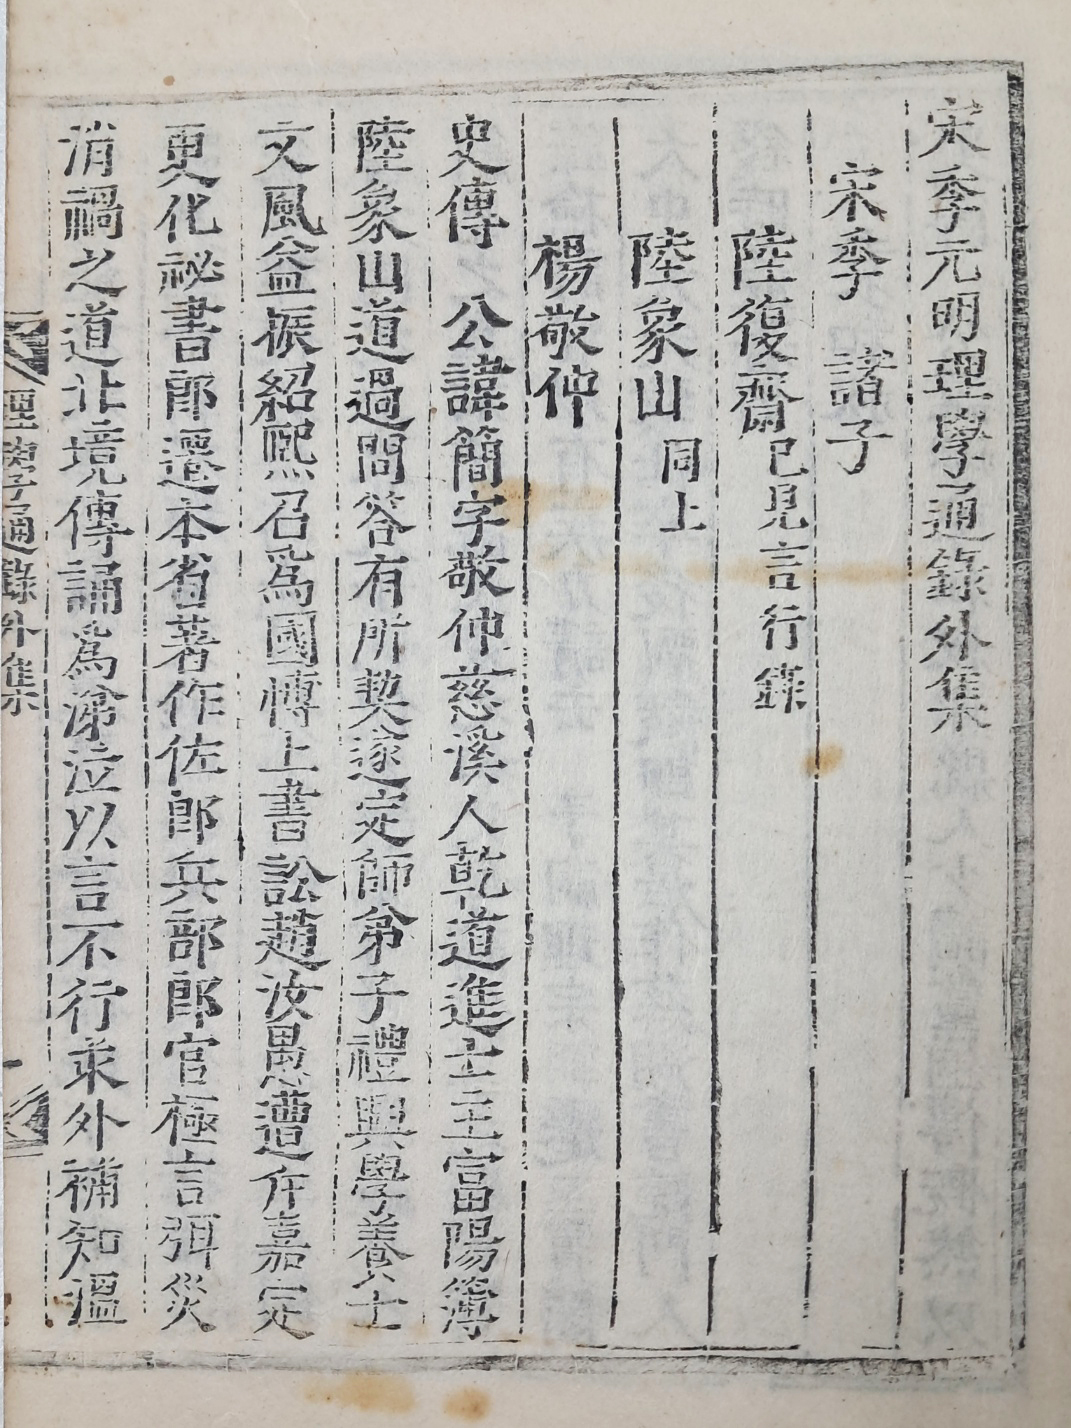 宋季元明理學通錄外集
宋季 諸子
陸復齋 已見言行錄
陸象山 同上
楊敬仲
史傳 公諱簡字敬仲慈溪人乾道進士主富陽簿
陸象山道過問答有所契遂定師弟子禮興學養士
文風益振紹熙召爲國博上書訟趙汝愚遭斥嘉定
更化祕書郎遷本省著作佐郎兵部郎官極言弭災
消禍之道北境傳誦爲涕泣以言不行求外補知溫
理學通錄外集
一